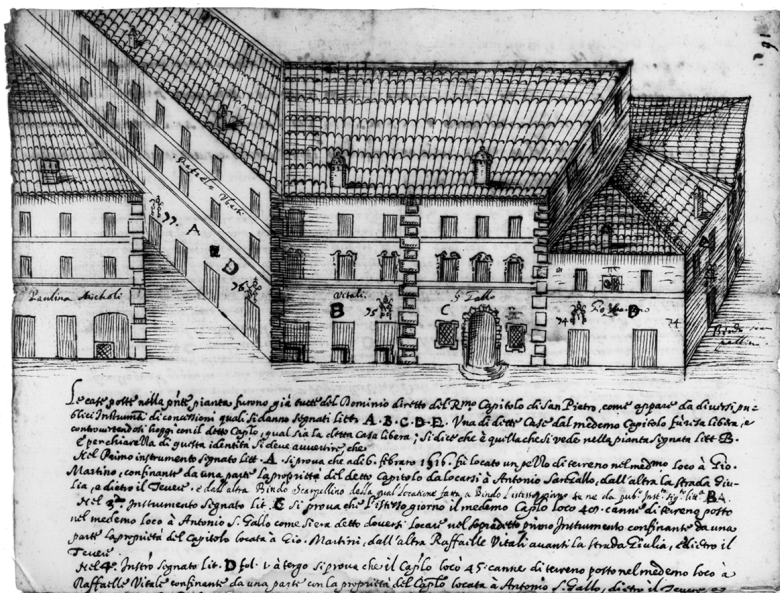 Raffaelle Vitali
77.
A
D
76
Paulina Micholi
Vitali
B
75
S. Gallo
C
74
D
74
Bindo scarpellino
Le case poste nella pnte pianta furono già tutte del Dominio diretto del Rmo Capitolo di San Pietro, come appare da diversi pu=
blici Instrumti di concessioni quali si danno segnati litt. A. B. C. D. E. Una di dette Case dal medemo Capitolo fù resa libera, e
controvertendosi hoggi con il detto Caplo, qual sia la detta Casa libera; si dice che è quella che si vede nella pianta signata litt. B.
E per chiarezza di questa identità si deve avvertire, che
Nel Primo instrumento signato litt. A. si prova che adi 6. febraro 1516. fù locato un pezzo di terreno nel medmo loco à Gio.
Martino, confinante da una parte la proprietà del detto Capitolo da locarsi à Antonio San Gallo, dall'altra la strada Giu=
lia, e dietro il Tevere. e dall'altra Bindo Scarpellino della qual locatione fatta a Bindo
Nel 3º Instrumento Signato lit. C si prova che l'istesso giorno il medemo Caplo locò 409. canne di terreno posto
nel medemo loco à Antonio S. Gallo come si era detto doversi locare nel sopradetto primo Instrumento confinante da una
parte la proprietà del Capitolo locata à Gio. Martini, dall'altra Raffaille Vitali avanti la strada Giulia, e dietro il
Tevere
Nel 4º Instro Segnato lit. D fol. 1 à tergo si prova che il Caplo locò 45. canne di terreno posto nel medemo loco à
Raffaelle Vitale confinante da una parte con la proprietà del Caplo locata à Antonio S. Gallo, dietro il Tevere, e